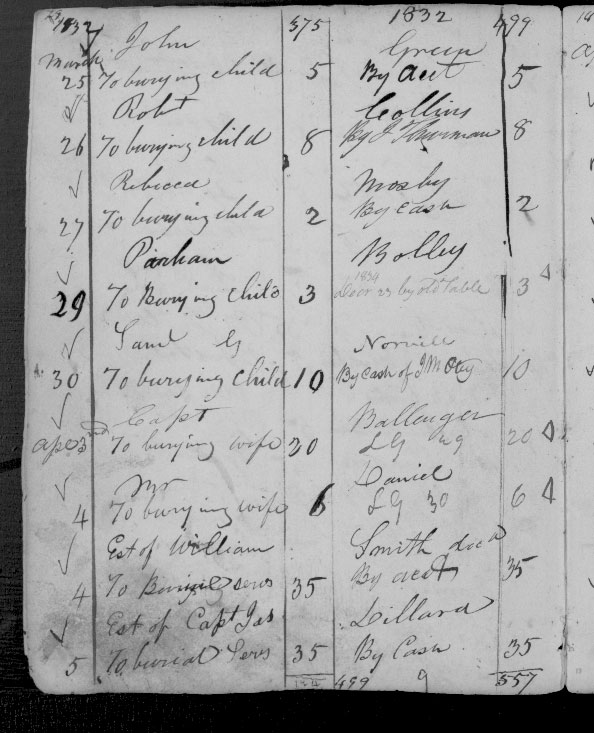 1832 375 1832 499
John Green
March 25 To burying child 5 By acct 5
Robt Collins
26 To burying child 8 By J Thurman 8
Rebecca Mosby
27 To burying child 2 By Cash 2
Parham Bolley
1834
29 To Burying Child 3 Decr 23 by old Table 3
Saml G Norvell
30 To burying Child 10 By Cash of J M Otey 10
Capt Ballenger
apl 3 To burying wife 20 LG 29 20
Mr Daniel
4 To burying wife 6 LG 30 6
Est of William Smith decd
4 To Burial servs 35 By acct 35
Est of Capt Jas Dillard
5 To burial Servs 35 By Cash 35
124 499 9 557